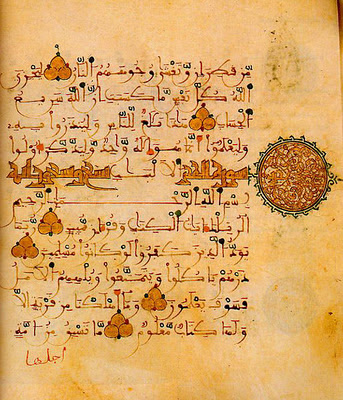 من قطران وتغشى وجوههم النار ليجزي
الله كل نفس ما كسبت ان الله سريع
الحساب هذا بلغ للناس ولينذروا به
وليعلموا انما هو اله وحد وليذكر اولوا
سورة الحجر الالبب
بسم الله الرحمن الرحيم
الر تلك ايت الكتب وقران مبين ربما
يود الذين كفروا لو كانوا مسلمين
ذرهم ياكلوا ويتمتعوا ويلههم الامل
فسوف يعلمون وما اهلكنا من قرية الا
ولها كتاب معلوم ما تسبق من امة
اجلها